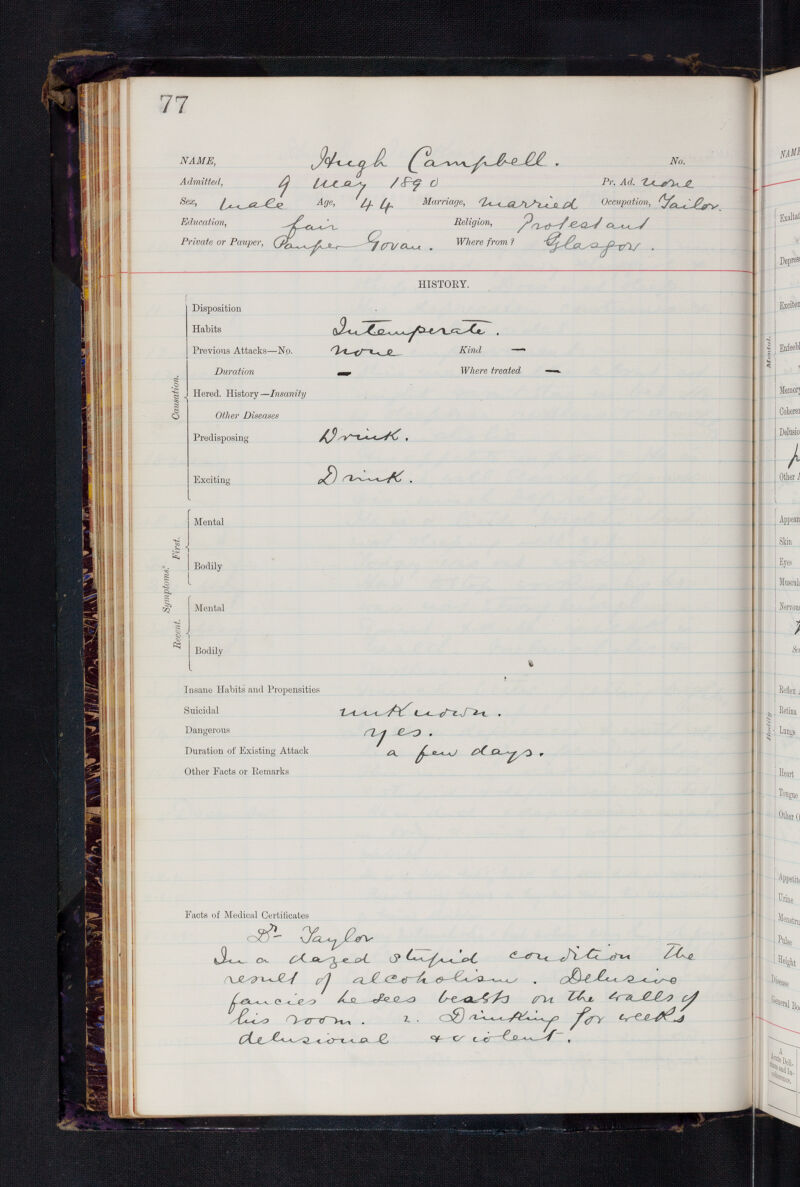 77
NAME, Hugh Campbell. No.
Admitted, 9 May 1890 Pr. Ad. none
Sex, Male Age, 44 Marriage, Married Occupation, Tailor.
Education, fair Religion, Protestant
Private or Pauper, Pauper Govan. Where from? Glasgow.
HISTORY.
Disposition
Habits Intemperate.
Previous Attacks—No. None Kind —
Duration — Where treated —
Causation.
Hered. History—Insanity
Other Diseases
Predisposing Drink.
Exciting Drink.
Symptoms.
First.
Mental
Bodily
Recent.
Mental
Bodily
Insane Habits and Propensities
Suicidal unknown.
Dangerous yes.
Duration of Existing Attack a few days.
Other Facts or Remarks
Facts of Medical Certificates
Dr- Taylor
In a dazed stupid condition the
result of alcoholism. Delusive
fancies he sees beasts on the walls of
his room. 2. Drinking for weeks
delusional & violent.
NAME
Mental.
Memory
Other
Skin
Eyes
Bodily
Retina
Lungs
Heart
Tongue
Other
Urine
Pulse
Height
Disease
General
A